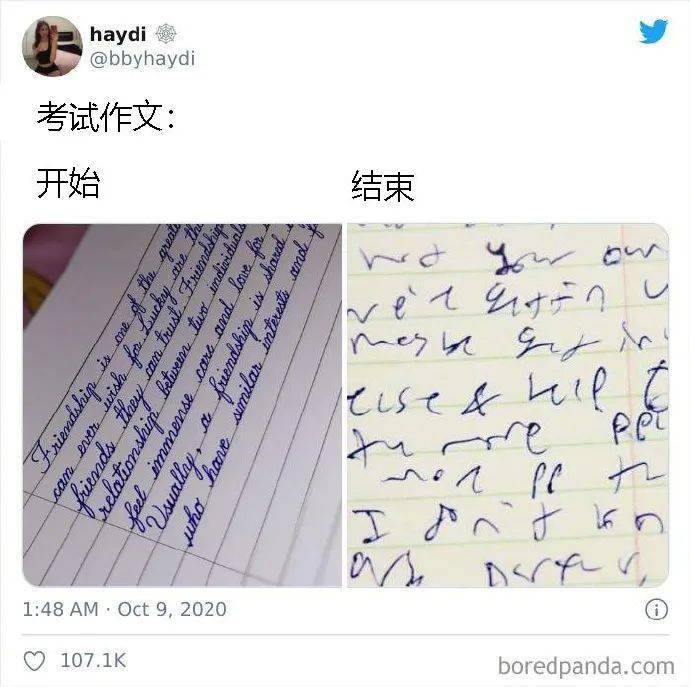 haydi
@bbyhaydi
考试作文：
开始
结束
Friendship is one of the great
can ever wish for. Lucky are th
friends they can trust. Friendship
relationship between two individual
feel immense care and love for
Usually, a friendship is shared
who have similar interests and
your own
else & help
more ppl
I don't
1:48 AM · Oct 9, 2020
107.1K
boredpanda.com